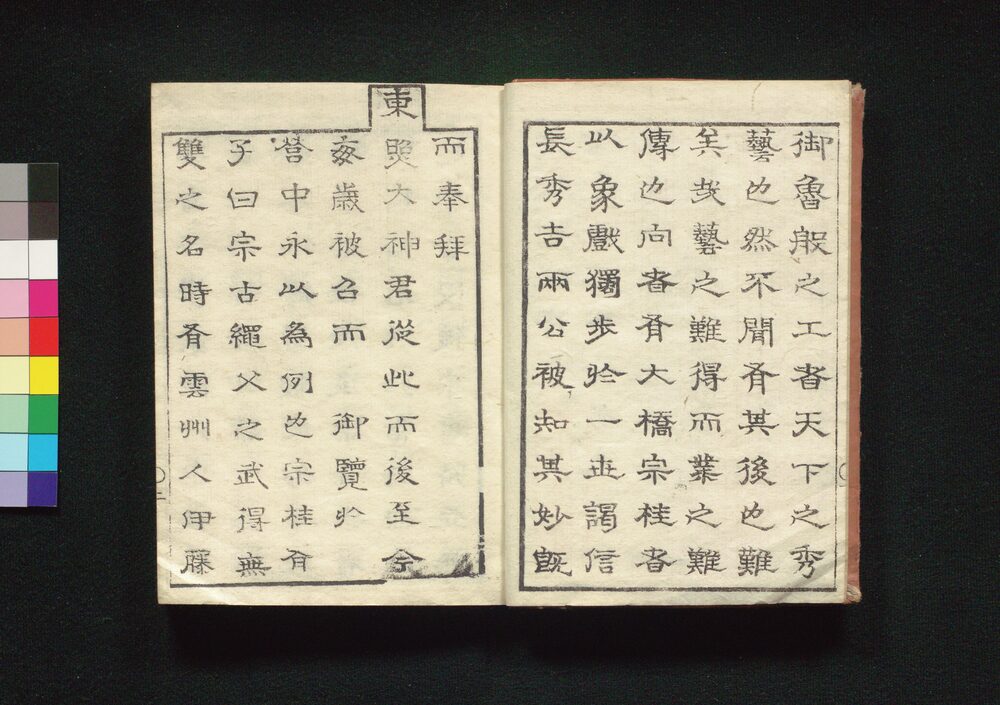 御魯般之工者天下之秀
藝也然不聞有其後也難
矣哉藝之難得而業之難
傳也向者有大橋宗桂者
以象戲獨步於一世謁信
長秀吉兩公被知其妙既
而奉拜
東
照大神君從此而後至今
每歲被召而 御覽於
營中永以為例也宗桂有
子曰宗古繩父之武得無
雙之名時有雲州人伊藤